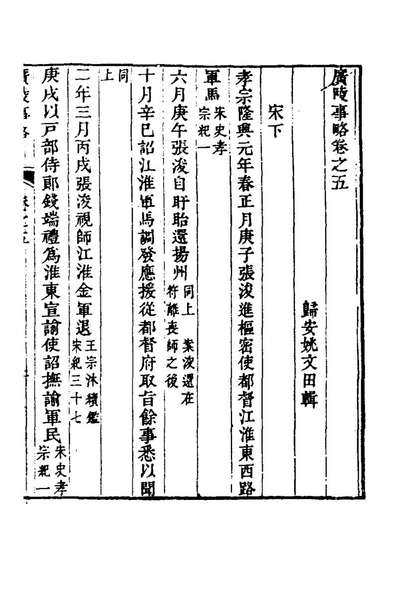 廣陵事略卷之五
歸安姚文田輯
宋下
孝宗隆興元年春正月庚子張浚進樞密使都督江淮東西路
軍馬宋史孝宗紀一
六月庚午張浚自盱眙還揚州同上 案浚還在符離喪師之後
十月辛巳詔江淮軍馬調發應援從都督府取旨餘事悉以聞
同上
二年三月丙戌張浚視師江淮金軍退王宗沐續鑑宋紀三十七
庚戌以戶部侍郎錢端禮爲淮東宣諭使詔撫諭軍民宋史孝宗紀一